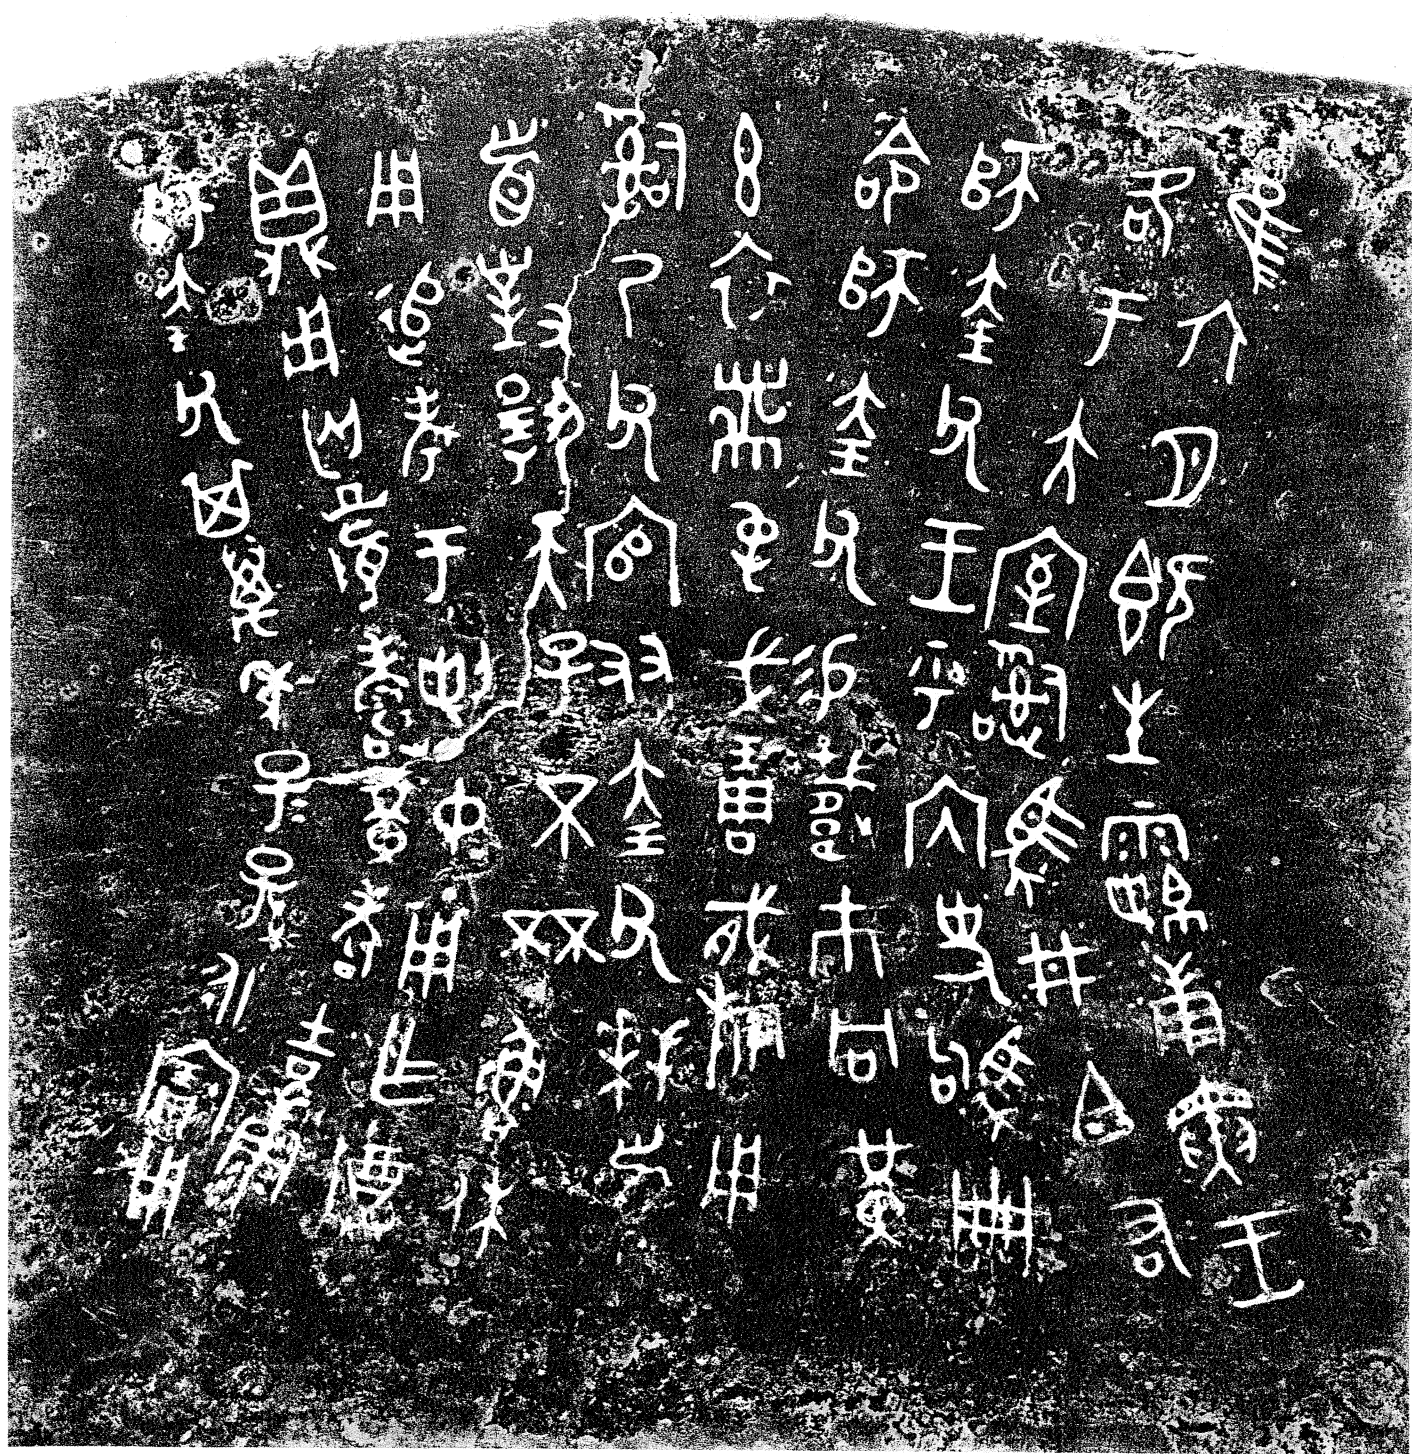 隹六月既生霸庚寅王
各于大室𤔲馬井白右
師𡘇父王乎內史駒冊
命師𡘇父易載巿冋黃
玄衣黹屯戈琱㦸旂用
𤔲乃父官友𡘇父拜𩒨
首對揚天子不𠀠魯休
用追考于剌中用乍𣪘
鼎用匄眉壽黃耇吉康
師𡘇父其萬年子子孫永寶用